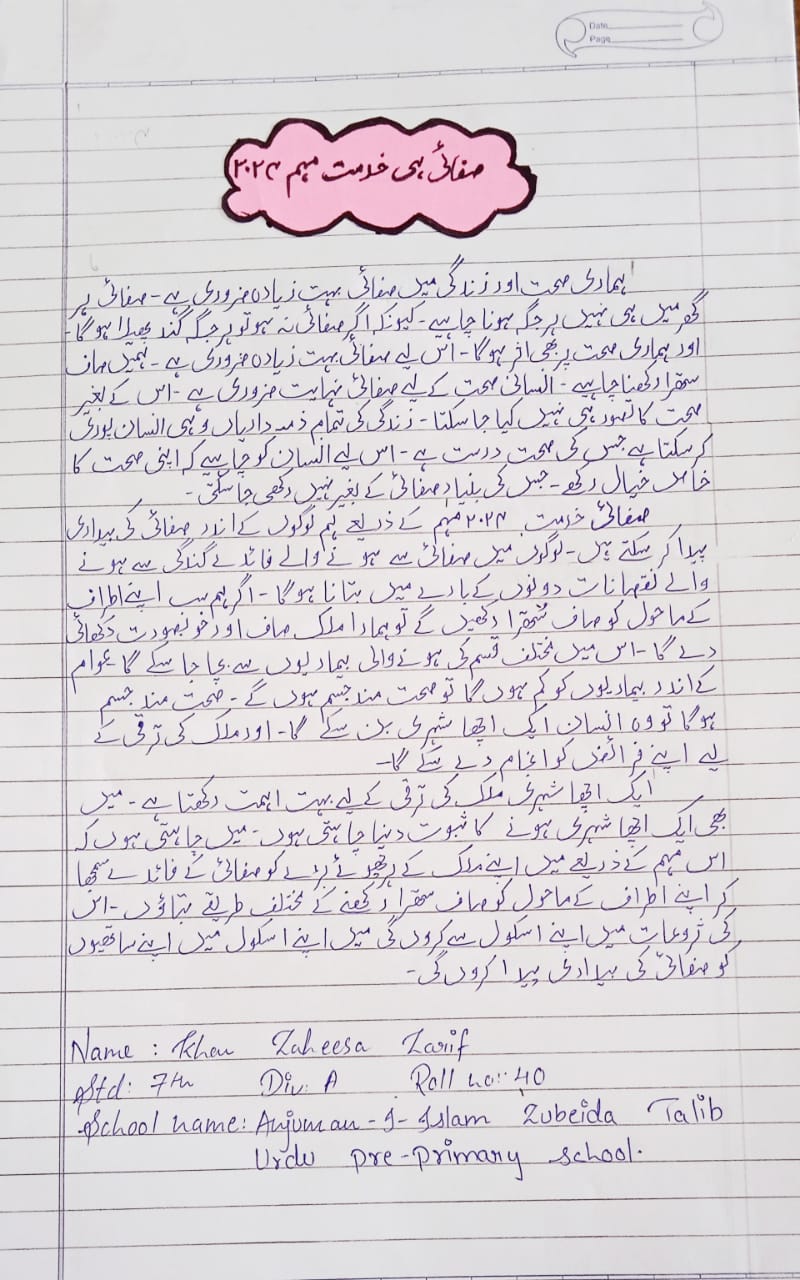 Date
Page
صفائی ہی خدمت مہم ۲۰۲۴
ہماری صحت اور زندگی میں صفائی بہت زیادہ ضروری ہے۔ صفائی ہر
گھر میں ہی نہیں ہر جگہ ہونا چاہیے۔ کیونکہ اگر صفائی نہ ہو تو ہر جگہ گند پھیلا ہوگا۔
اور ہماری صحت پر بھی اثر ہوگا۔ اس لیے صفائی بہت زیادہ ضروری ہے۔ ہمیں صاف
ستھرا رکھنا چاہیے۔ انسانی صحت کے لیے صفائی نہایت ضروری ہے۔ اس کے بغیر
صحت کا تصور ہی نہیں کیا جا سکتا۔ زندگی کی تمام ذمہ داریاں وہی انسان پوری
کر سکتا ہے جس کی صحت درست ہے۔ اس لیے انسان کو چاہیے کہ اپنی صحت کا
خاص خیال رکھے۔ جس کی بنیاد صفائی کے بغیر نہیں رکھی جا سکتی۔
صفائی خدمت ۲۰۲۴ مہم کے ذریعے ہم لوگوں کے اندر صفائی کی بیداری
پیدا کر سکتے ہیں۔ لوگوں میں صفائی سے ہونے والے فائدے گندگی سے ہونے
والے نقصانات دونوں کے بارے میں بتانا ہوگا۔ اگر ہم سب اپنے اطراف
کے ماحول کو صاف ستھرا رکھیں گے تو ہمارا ملک صاف اور خوبصورت دکھائی
دے گا۔ اس میں مختلف قسم کی ہونے والی بیماریوں سے بچا جا سکے گا عوام
کے اندر بیماریوں کو کم ہوں گا تو صحت مند جسم ہوں گے۔ صحت مند جسم
ہوگا تو وہ انسان ایک اچھا شہری بن سکے گا۔ اور ملک کی ترقی کے
لیے اپنے فرائض کو انجام دے سکے گا۔
ایک اچھا شہری ملک کی ترقی کے لیے بہت اہمت رکھتا ہے۔ میں
بھی ایک اچھا شہری ہونے کا ثبوت دینا چاہتی ہوں۔ میں چاہتی ہوں کہ
اس مہم کے ذریعے میں اپنے ملک کے ہر چھوٹے بڑے کو صفائی کے فائدے سمجھا
کر اپنے اطراف کے ماحول کو صاف ستھرا رکھنے کے مختلف طریقے بتاؤں۔ اس
کی شروعات میں اپنے اسکول سے کروں گی میں اپنے اسکول میں اپنے ساتھیوں
کو صفائی کی بیداری پیدا کروں گی۔
Name : Khan Zaheesa Zarif
Std: 7th Div: A Roll no: 40
School name: Anjuman-I-Islam Zubeida Talib
Urdu pre-primary school.